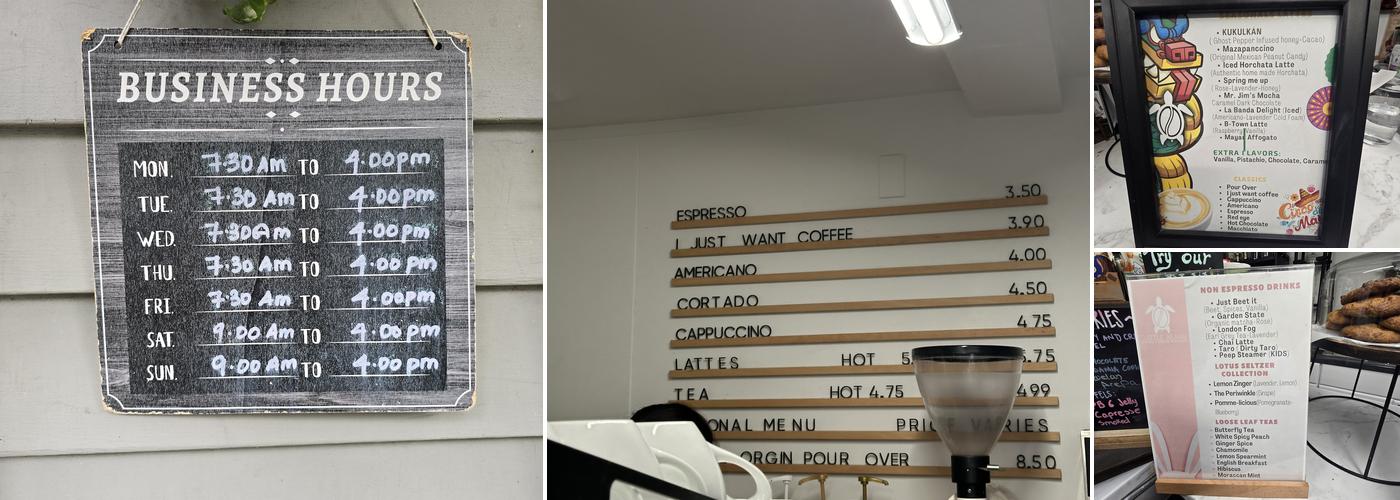 BUSINESS HOURS
MON. 7:30 Am TO 4:00pm
TUE. 7:30 Am TO 4:00pm
WED. 7:30Am TO 4:00pm
THU. 7:30 Am TO 4:00pm
FRI. 7:30 Am TO 4:00pm
SAT. 9:00 Am TO 4:00pm
SUN. 9:00 Am TO 4:00pm
ESPRESSO 3.50
I JUST WANT COFFEE 3.90
AMERICANO 4.00
CORTADO 4.50
CAPPUCCINO 4.75
LATTES HOT
TEA HOT 4.75
MENU
ORGIN POUR OVER 8.50
• KUKULKAN
(Ghost Pepper Infused honey-Cacao)
• Mazapanccino
(Original Mexican Peanut Candy)
• Iced Horchata Latte
(Authentic home made Horchata)
• Spring me up
(Rose-Lavender-Honey)
• Mr. Jim's Mocha
Caramel Dark Chocolate
• La Banda Delight (Iced)
(Americano-Lavender Cold Foam)
• B-Town Latte
(Raspberry Vanilla)
• Mayan Affogato
EXTRA FLAVORS:
Vanilla, Pistachio, Chocolate,
CLASSICS
• Pour Over
• I just want coffee
• Cappuccino
• Americano
• Espresso
• Red eye
• Hot Chocolate
• Macchiato
Try our
NON ESPRESSO DRINKS
• Just Beet it
(Beet, Spices, Vanilla)
• Garden State
(Organic matcha-Rose)
• London Fog
(Earl Grey Tea-Lavender)
• Chai Latte
• Taro (Dirty Taro)
• Peep Steamer (KIDS)
LOTUS SELTZER
COLLECTION
• Lemon Zinger (Lavender, Lemon)
• The Periwinkle (Grape)
• Pomme-licious(Pomegranate-
Blueberry)
LOOSE LEAF TEAS
• Butterfly Tea
• White Spicy Peach
• Ginger Spice
• Chamomile
• Lemon Spearmint
• English Breakfast
• Hibiscus
• Moroccan Mint